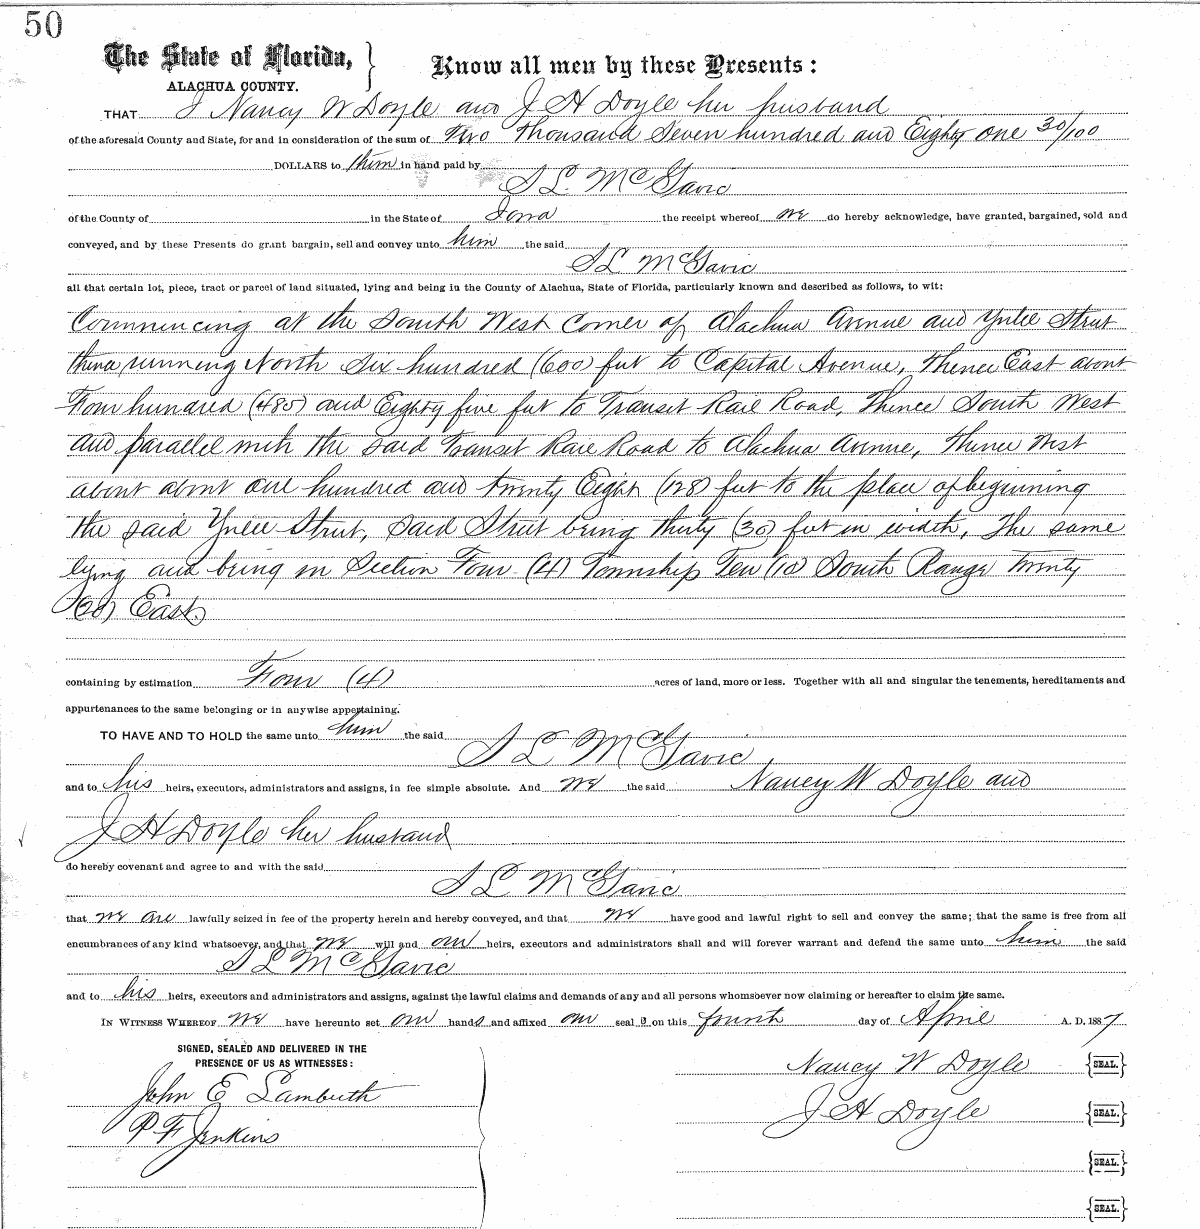 50
The State of Florida, }
ALACHUA COUNTY.
Know all men by these Presents:
THAT I Nancy W Doyle and J H Doyle her husband
of the aforesaid County and State, for and in consideration of the sum of Two Thousand Seven hundred and Eighty one 30/100
DOLLARS to them in hand paid by
S L McGavic
of the County of in the State of Iowa the receipt whereof we do hereby acknowledge, have granted, bargained, sold and
conveyed, and by these Presents do grant bargain, sell and convey unto him the said
S L McGavic
all that certain lot, piece, tract or parcel of land situated, lying and being in the County of Alachua, State of Florida, particularly known and described as follows, to wit:
Commencing at the South West Corner of Alachua Avenue and Yulee Street
thence running North Six hundred (600) feet to Capital Avenue, Thence East about
Four hundred (485) and Eighty five feet to Transit Rail Road, Thence South West
and parallel with the said Transit Rail Road to Alachua Avenue, Thence West
about about one hundred and twenty Eight (128) feet to the place of beginning
the said Yulee Street, Said Street being thirty (30) feet in width, The same
lying and being in Section Four (4) Township Ten (10) South Range Twenty
(20) East.
containing by estimation Four (4) acres of land, more or less. Together with all and singular the tenements, hereditaments and
appurtenances to the same belonging or in anywise appertaining.
TO HAVE AND TO HOLD the same unto him the said
S L McGavic
and to his heirs, executors, administrators and assigns, in fee simple absolute. And we the said Nancy W Doyle and
J H Doyle her husband
do hereby covenant and agree to and with the said
S L McGavic
that we are lawfully seized in fee of the property herein and hereby conveyed, and that we have good and lawful right to sell and convey the same; that the same is free from all
encumbrances of any kind whatsoever, and that we will and our heirs, executors and administrators shall and will forever warrant and defend the same unto him the said
S L McGavic
and to his heirs, executors and administrators and assigns, against the lawful claims and demands of any and all persons whomsoever now claiming or hereafter to claim the same.
IN WITNESS WHEREOF we have hereunto set our hands and affixed our seal s on this fourth day of April A. D. 1887
SIGNED, SEALED AND DELIVERED IN THE
PRESENCE OF US AS WITNESSES:
John E Lambuth
P F Jenkins
Nancy W Doyle {SEAL.}
J H Doyle {SEAL.}
{SEAL.}
{SEAL.}